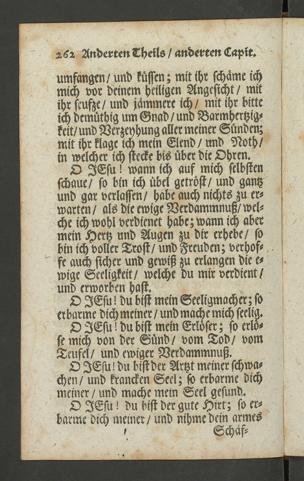 262 Anderten Theils / anderten Capit.
umfangen / und küssen; mit ihr schäme ich
mich vor deinem heiligen Angesicht / mit
ihr seufze / und jammere ich / mit ihr bitte
ich demüthig um Gnad / und Barmhertzig-
keit / und Verzeyhung aller meiner Sünden;
mit ihr klage ich mein Elend / und Noth /
in welcher ich stecke bis über die Ohren.
O JEsu! wann ich auf mich selbsten
schaue / so bin ich übel getröst / und gantz
und gar verlassen / habe auch nichts zu er-
warten / als die ewige Verdammnuß / wel-
che ich wohl verdienet habe; wann ich aber
mein Hertz und Augen zu dir erhebe / so
bin ich voller Trost / und Freuden; verhof-
fe auch sicher und gewiß zu erlangen die e-
wige Seeligkeit / welche du mir verdient /
und erworben hast.
O JEsu! du bist mein Seeligmacher; so
erbarme dich meiner / und mache mich seelig.
O JEsu! du bist mein Erlöser; so erlö-
se mich von der Sünd / vom Tod / vom
Teufel / und ewiger Verdammnuß.
O JEsu! du bist der Artzt meiner schwa-
chen / und krancken Seel; so erbarme dich
meiner / und mache mein Seel gesund.
O JEsu! du bist der gute Hirt; so er-
barme dich meiner / und nihme dein armes
Schäf-